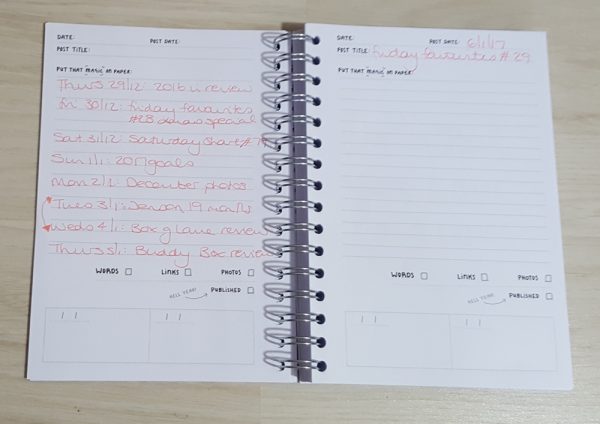 DATE: POST DATE:
POST TITLE:
PUT THAT "MAGIC" ON PAPER:
Thurs 29/12: 2016 in review
Fri 30/12: Friday favourites
#28 xmas special
Sat 31/12: Saturday Share #
Sun 1/1: 2017 goals
Mon 2/1: December photos
Tues 3/1: 19 months
Weds 4/1: Box of Love review
Thurs 5/1: Buddy Box review
WORDS LINKS PHOTOS
HELL YEAH! PUBLISHED
/ / / /
DATE: POST DATE: 6/1/17
POST TITLE: Friday favourites #29
PUT THAT "MAGIC" ON PAPER:
WORDS LINKS PHOTOS
HELL YEAH! PUBLISHED
/ / / /